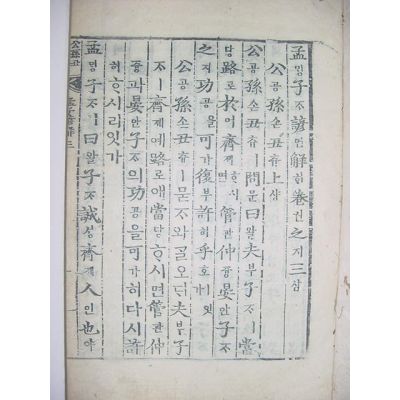 孟ᄆᆡᆼ子ᄌᆞ諺언解ᄒᆡ卷권之지三삼
公공孫손丑츄上샹
公공孫손丑츄ㅣ問문曰왈夫부子ᄌᆞㅣ當
당路로於어齊졔ᄒᆞ시면管관仲듕晏안子ᄌᆞ
之지功공을可가復부許허乎호잇가
公공孫손丑츄ㅣ묻ᄌᆞ와ᄀᆞᆯ오ᄃᆡ夫부子
ᄌᆞㅣ齊졔예路로애當당ᄒᆞ시면管관仲
듕과晏안子ᄌᆞ의功공을可가히다시許
허ᄒᆞ시리잇가
孟ᄆᆡᆼ子ᄌᆞㅣ曰왈子ᄌᆞ誠셩齊졔人인也야
公孫丑
孟子諺解 三